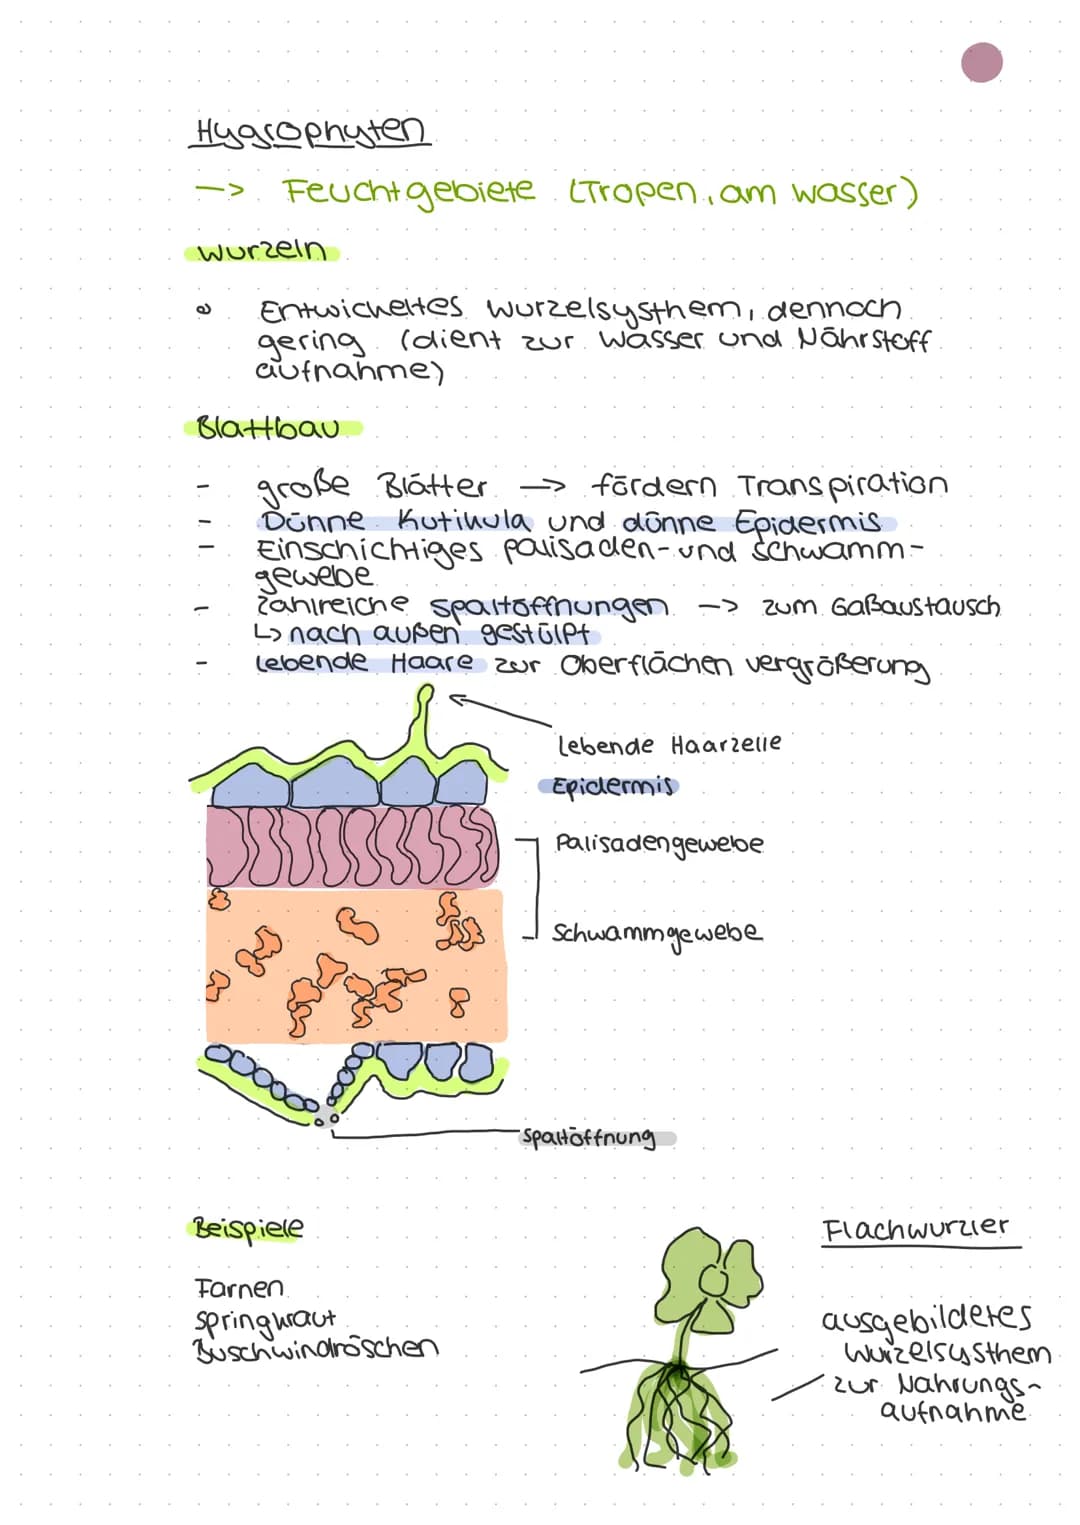 Hygrophyten
–> Feuchtgebiete (Tropen, am wasser)
wurzeln
Entwickeltes wurzelsysthem, dennoch
gering (dient zur Wasser und Nährstoff
aufnahme)
Blattbau
- große Blätter –> fördern Transpiration
- Dünne Kutikula und dünne Epidermis
- Einschichtiges palisaden- und schwamm-
gewebe
- zahlreiche spaltöffnungen –> zum Gaßaustausch
↳ nach außen gestülpt
- lebende Haare zur Oberflächen vergrößerung
lebende Haarzelle
Epidermis
Palisadengewebe
Schwammgewebe
Spaltöffnung
Beispiele
Farnen
springkraut
Buschwindröschen
Flachwurzler
ausgebildetes
wurzelsysthem
zur Nahrungs-
aufnahme